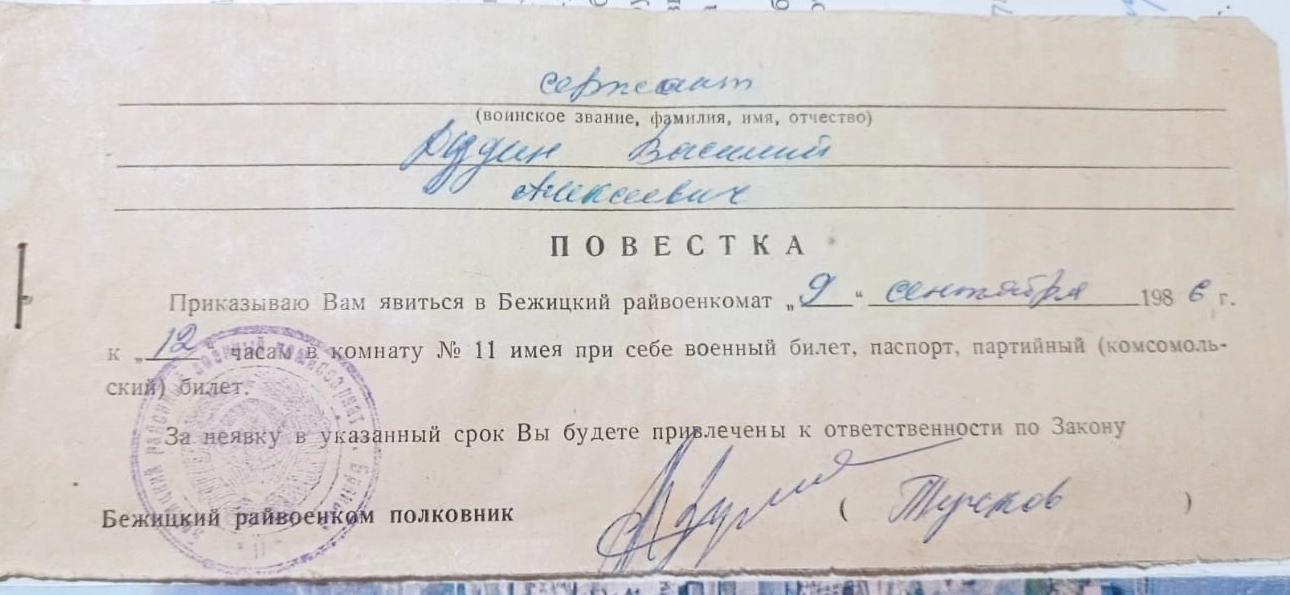 сержант
(воинское звание, фамилия, имя, отчество)
Василий
Алексеевич
ПОВЕСТКА
Приказываю Вам явиться в Бежицкий райвоенкомат „9“ сентября 1986 г.
к „12“ часам в комнату № 11 имея при себе военный билет, паспорт, партийный (комсомоль-
ский) билет.
За неявку в указанный срок Вы будете привлечены к ответственности по Закону
Бежицкий райвоенком полковник ( )